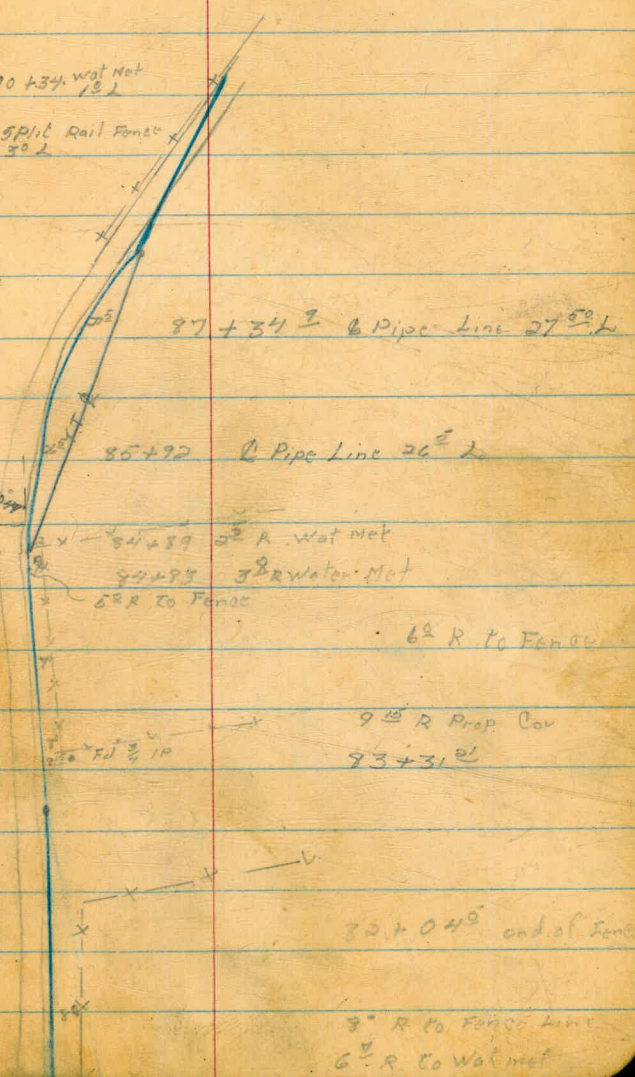 0 + 34. Wat Met
1º L
Split Rail Fence
3º L
87 + 34 9 ℄ Pipe Line 27 50 L
85+92 ℄ Pipe Line 26 5 L
84+89 R Wat Met
84+83 3 8 R Water Met
5º R To Fence
6º R to Fence
9 R Prop Cor
Fd 3/4 IP
83+31 21
+ 04 5 end of Fenc
8º R to Fence Line
6 R to Wat met